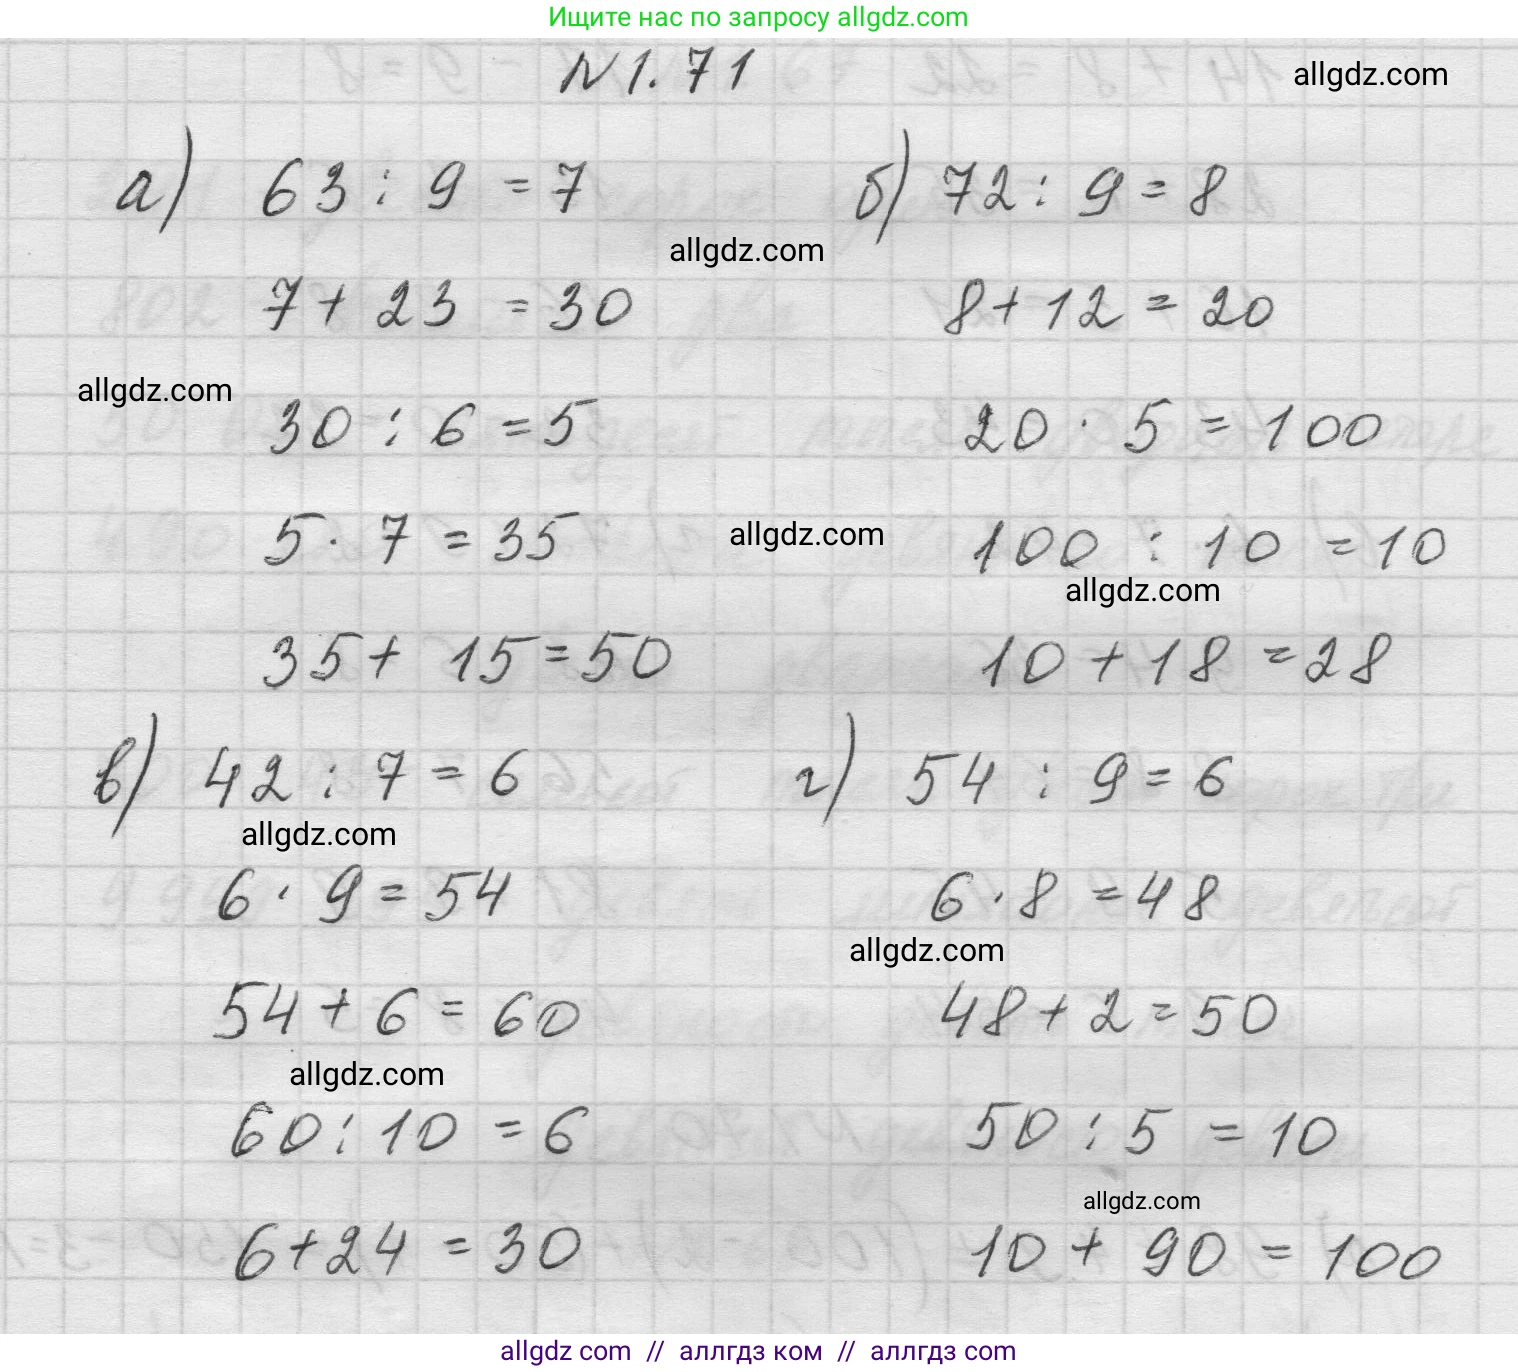 Ищите нас по запросу allgdz.com
N 1.71
allgdz.com
а) 63 : 9 = 7
7 + 23 = 30
30 : 6 = 5
5 · 7 = 35
35 + 15 = 50
б) 72 : 9 = 8
8 + 12 = 20
20 · 5 = 100
100 : 10 = 10
10 + 18 = 28
allgdz.com
allgdz.com
allgdz.com
allgdz.com
в) 42 : 7 = 6
6 · 9 = 54
54 + 6 = 60
60 : 10 = 6
6 + 24 = 30
г) 54 : 9 = 6
6 · 8 = 48
48 + 2 = 50
50 : 5 = 10
10 + 90 = 100
allgdz.com
allgdz.com
allgdz.com
allgdz.com
allgdz com // аллгдз ком // аллгдз com